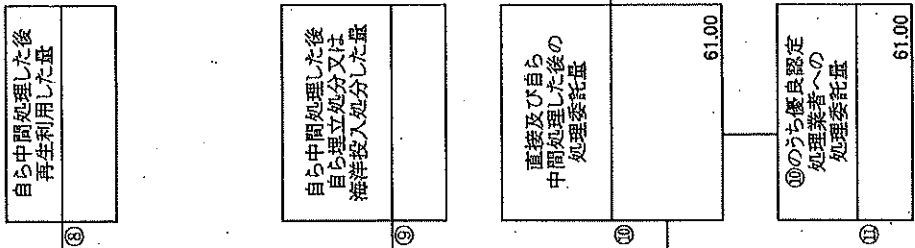 自ら中間処理した後
再生利用した量
⑧
自ら中間処理した後
自ら埋立処分又は
海洋投入処分した量
⑨
直接及び自ら
中間処理した後の
処理委託量
⑩
61.00
⑩のうち優良認定
処理業者への
処理委託量
⑪
61.00